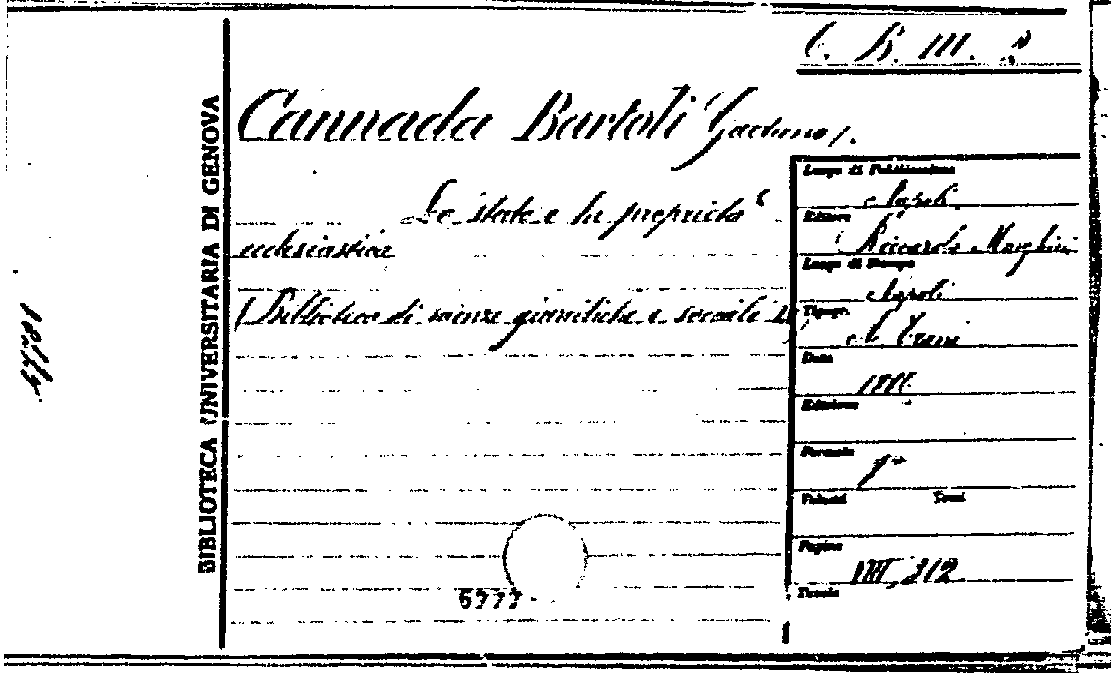 C. B. III. 2
Cannada Bartoli (Gaetano).
Lo stato e la proprietà
ecclesiastica
(Biblioteca di scienze giuridiche e sociali
Luogo di Pubblicazione
Napoli
Editore
Riccardo Marghieri
Luogo di Stampa
Napoli
Tipogr.
A. Trani
Data
Edizione
Formato
8°
Volumi Tomi
Pagine
VIII, 312
Tavole
BIBLIOTECA UNIVERSITARIA DI GENOVA